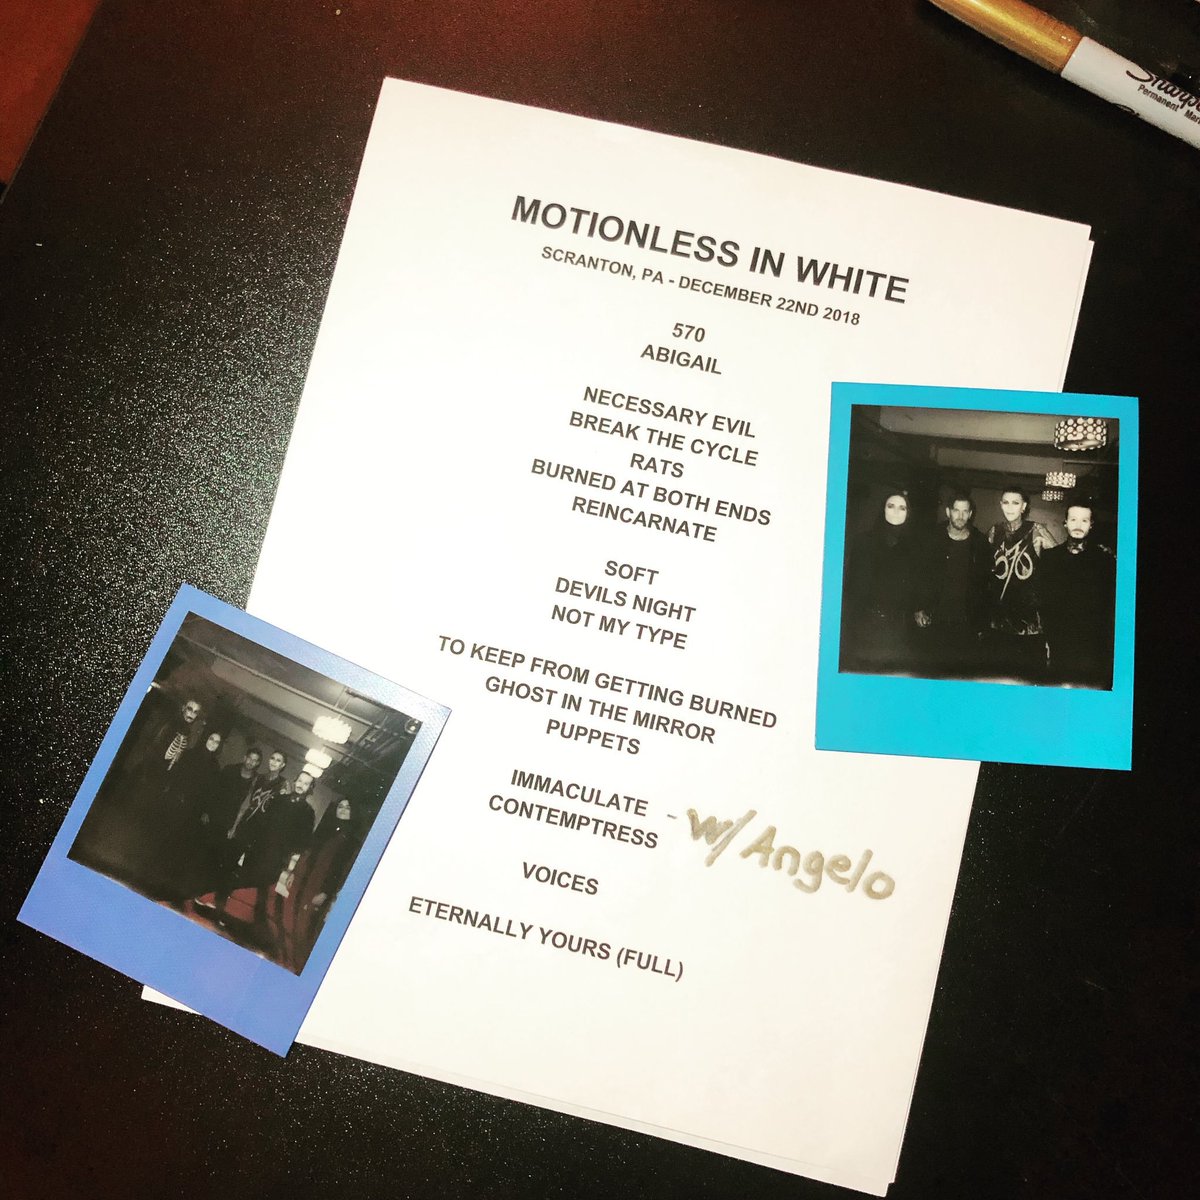 Sharpie
Permanent Marker
MOTIONLESS IN WHITE
SCRANTON, PA - DECEMBER 22ND 2018
570
ABIGAIL
NECESSARY EVIL
BREAK THE CYCLE
RATS
BURNED AT BOTH ENDS
REINCARNATE
SOFT
DEVILS NIGHT
NOT MY TYPE
TO KEEP FROM GETTING BURNED
GHOST IN THE MIRROR
PUPPETS
IMMACULATE
CONTEMPTRESS
- w/ Angelo
VOICES
ETERNALLY YOURS (FULL)
570
570